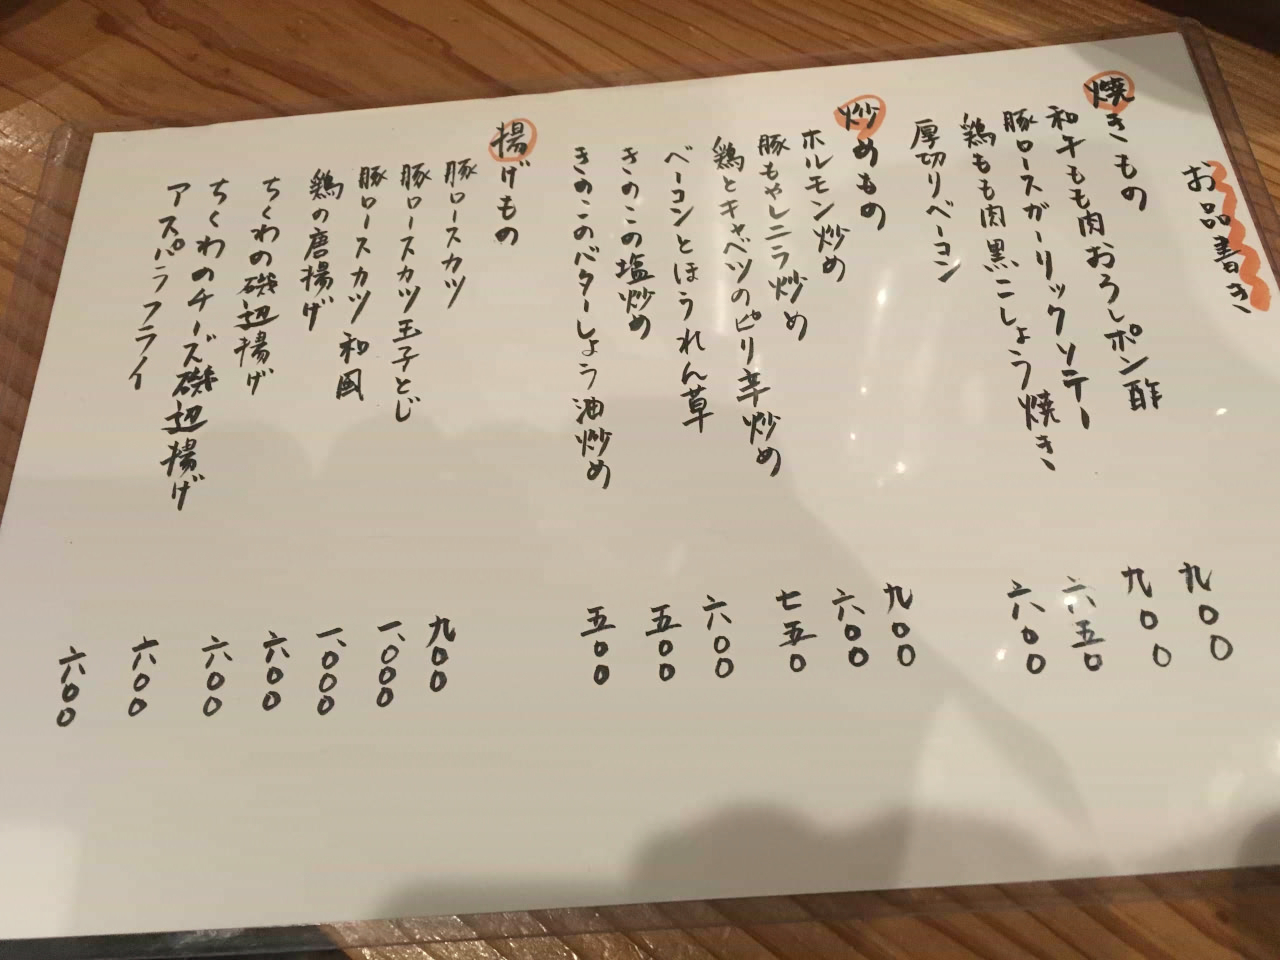 お品書き
焼きもの
和牛もも肉おろしポン酢 九〇〇
豚ロースガーリックソテー 九〇〇
鶏もも肉黒こしょう焼き 六五〇
厚切りベーコン 六〇〇
炒めもの
ホルモン炒め 九〇〇
豚もやしニラ炒め 六〇〇
鶏とキャベツのピリ辛炒め 七五〇
ベーコンとほうれん草 六〇〇
きのこの塩炒め 五〇〇
きのこのバターしょう油炒め 五〇〇
揚げもの
豚ロースカツ 九〇〇
豚ロースカツ玉子とじ 一、〇〇〇
豚ロースカツ 和風 一、〇〇〇
鶏の唐揚げ 六〇〇
ちくわの磯辺揚げ 六〇〇
ちくわのチーズ磯辺揚げ 六〇〇
アスパラフライ 六〇〇